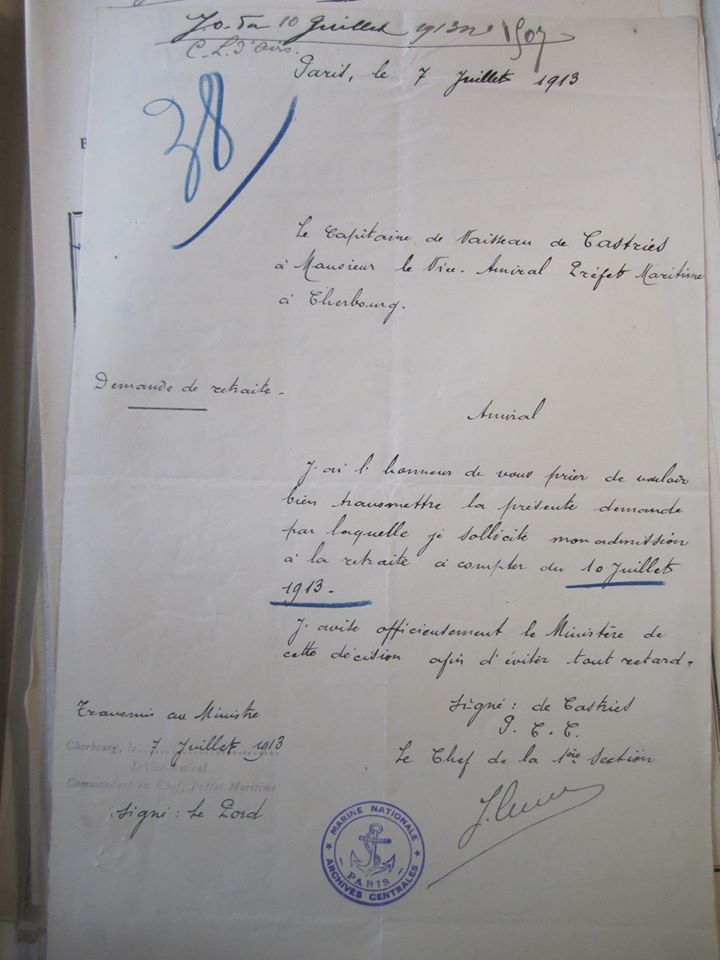 J.O. du 10 Juillet 1913
Paris, le 7 Juillet 1913
38
Le Capitaine de Vaisseau de Castries
à Monsieur le Vice-Amiral Préfet Maritime
à Cherbourg.
Demande de retraite.
Amiral
J'ai l'honneur de vous prier de vouloir
bien transmettre la présente demande
par laquelle je sollicite mon admission
à la retraite à compter du 10 Juillet
1913.
J'avise officieusement le Ministère de
cette décision afin d'éviter tout retard.
Transmis au Ministre
Cherbourg, le 7 Juillet 1913
Le Vice-Amiral
Commandant en Chef, Préfet Maritime
Signé: Le Pord
Signé: de Castries
P.C.C.
Le Chef de la 1ère Section
MARINE NATIONALE
PARIS
ARCHIVES CENTRALES